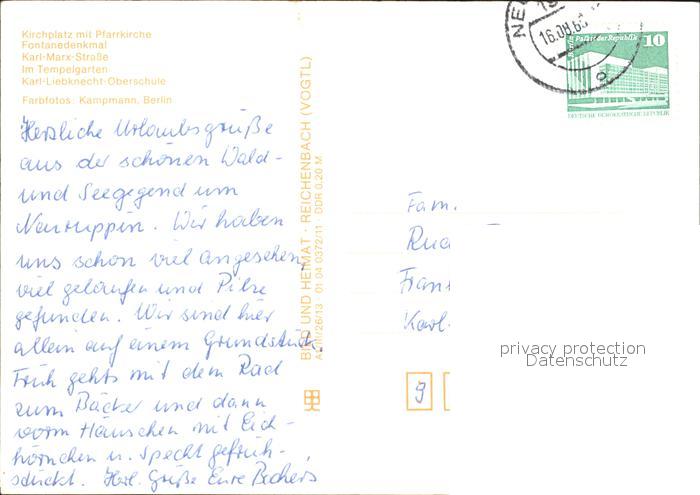 Kirchplatz mit Pfarrkirche
Fontanedenkmal
Karl-Marx-Straße
Im Tempelgarten
Karl-Liebknecht-Oberschule
Farbfotos: Kampmann, Berlin
Herzliche Urlaubsgrüße
aus der schönen Wald-
und Seegegend um
Neuruppin. Wir haben
uns schon viel angesehen,
viel gelaufen und Pilze
gefunden. Wir sind hier
allein auf einem Grundstück.
Früh gehts mit dem Rad
zum Bäcker und dann
vorm Häuschen mit Eich-
hörnchen u. Specht gefrüh-
stückt. Herzl. Grüße Eure
BILD UND HEIMAT · REICHENBACH (VOGTL)
01 04 0372/11 · DDR 0,20 M
NE
16.08.
Palast der Republik
10
DEUTSCHE DEMOKRATISCHE REPUBLIK
Fam.
Rud
Karl-
9
privacy protection
Datenschutz